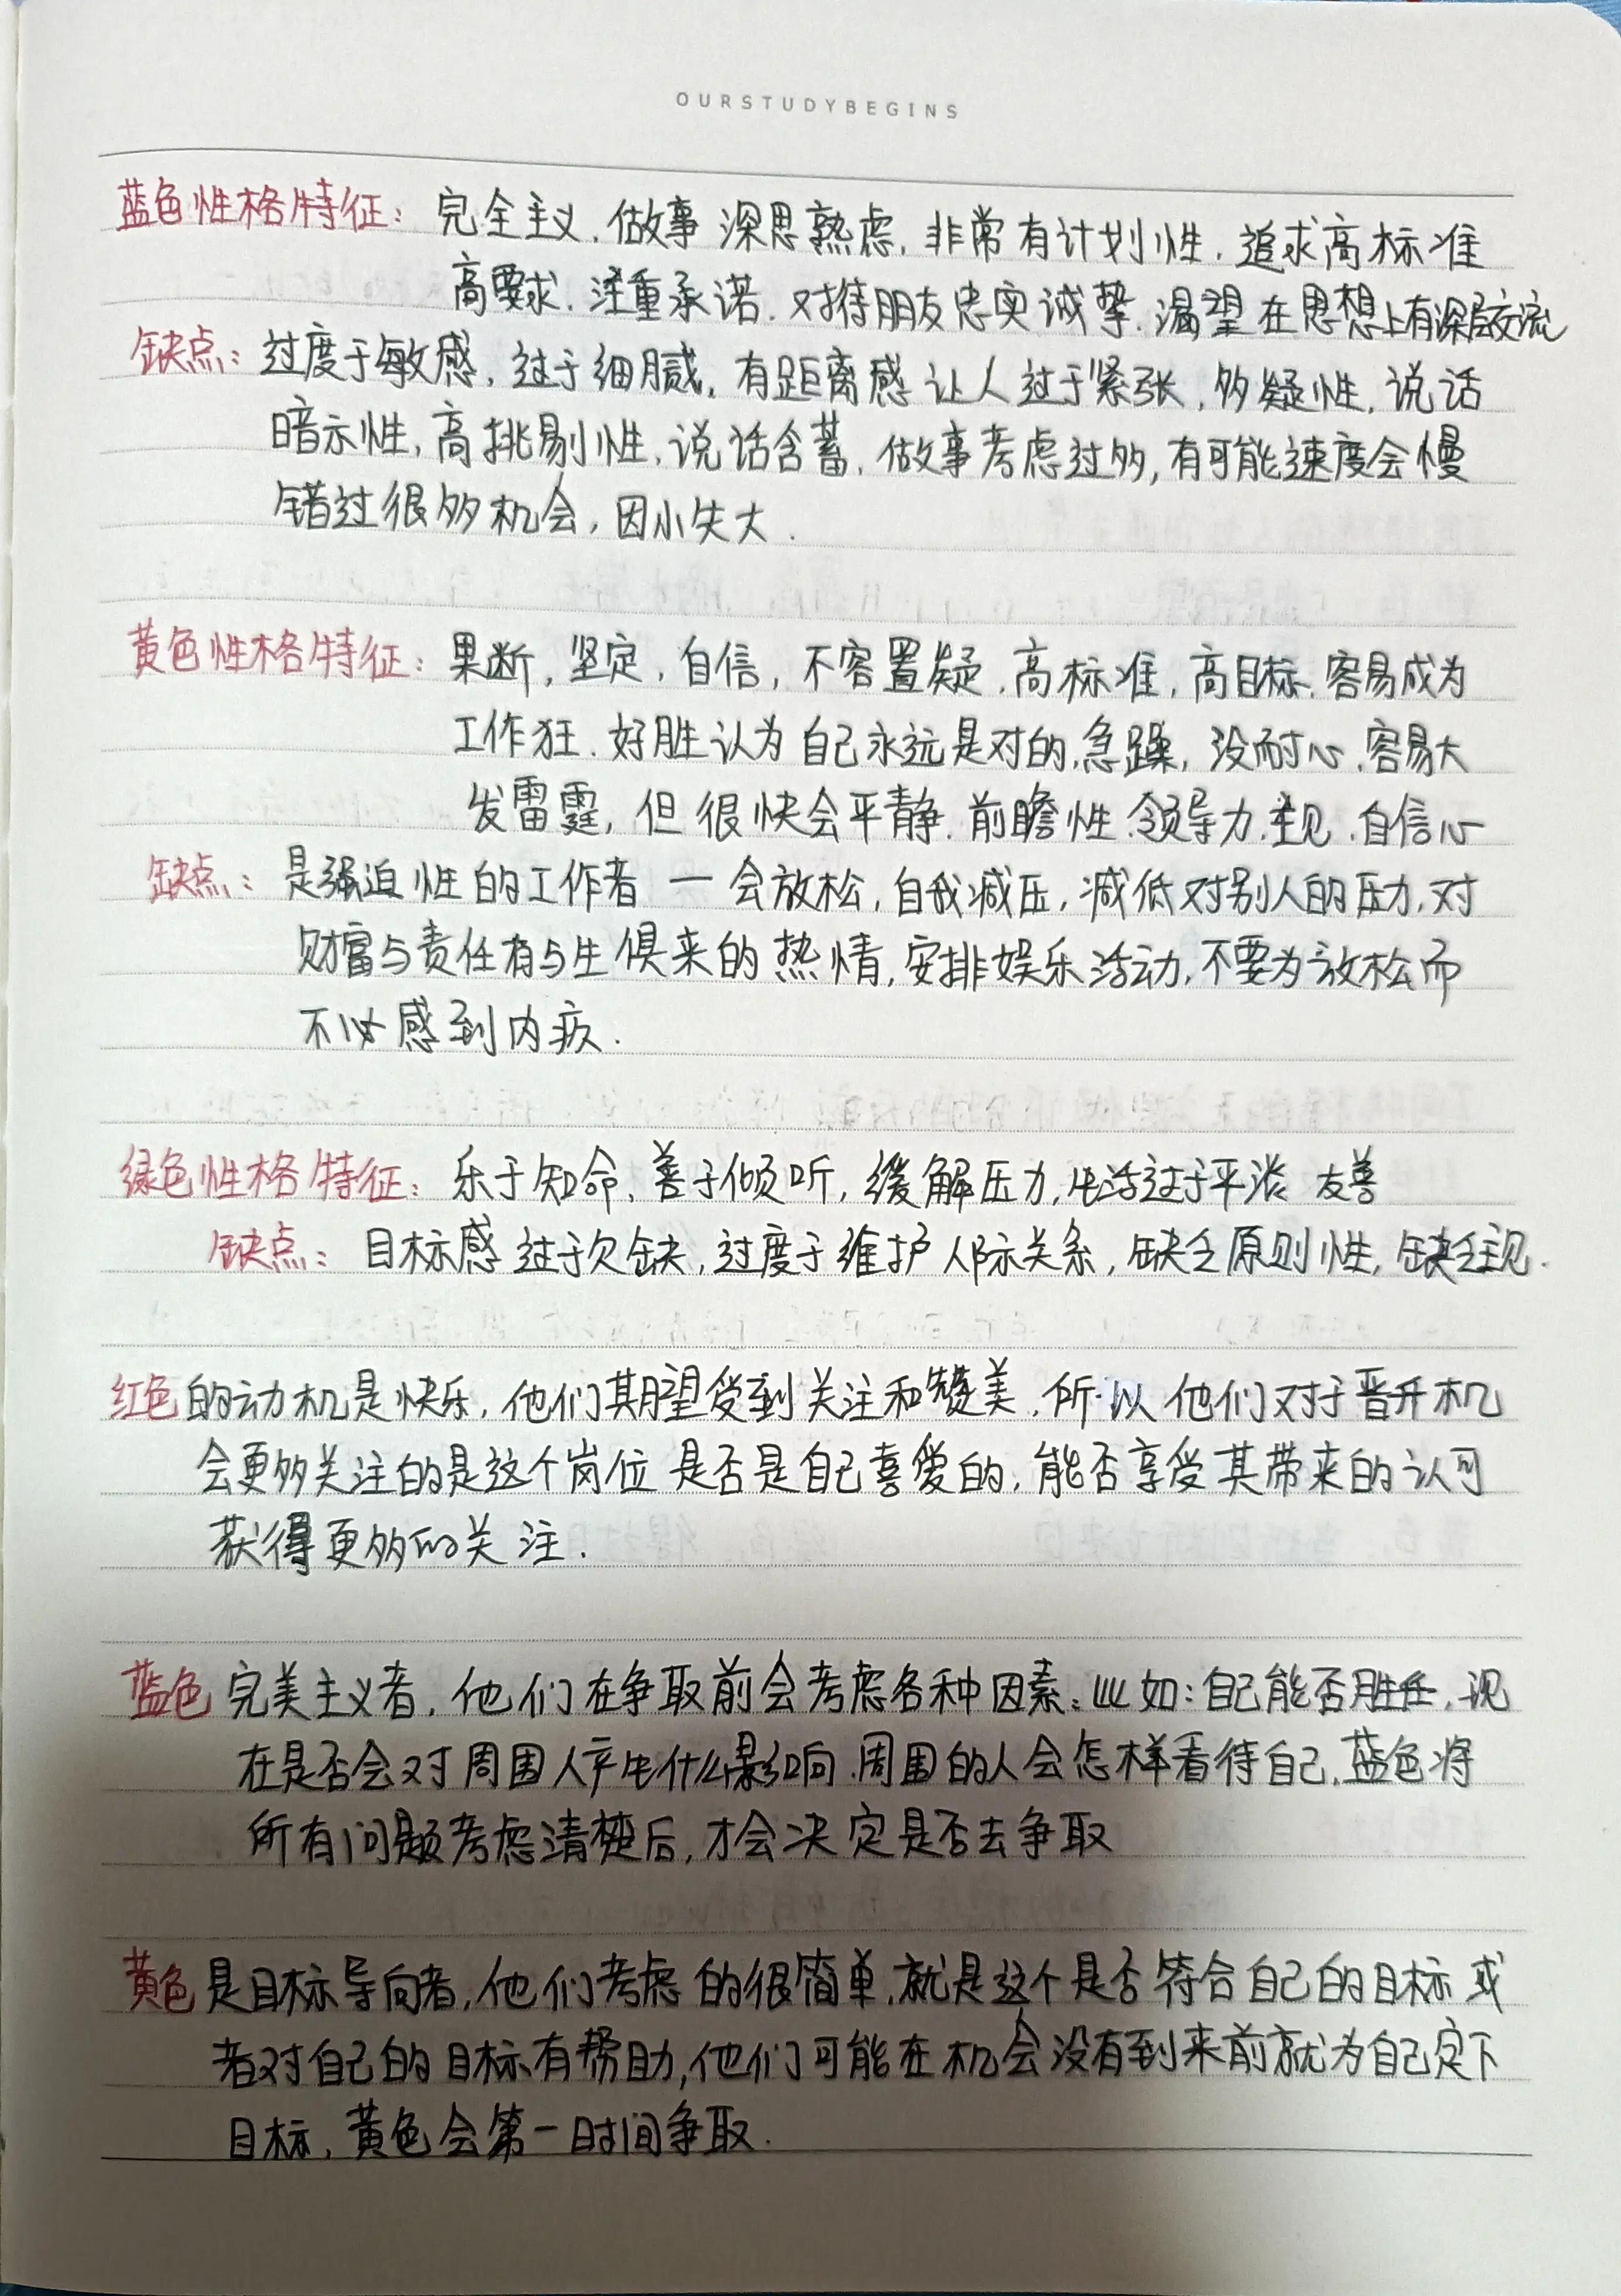 OURSTUDYBEGINS
蓝色性格特征：完全主义，做事深思熟虑，非常有计划性，追求高标准
高要求，注重承诺，对待朋友忠实诚挚，渴望在思想上有深层交流
缺点：过度于敏感，过于细腻，有距离感让人过于紧张，多疑性，说话
暗示性，高挑剔性，说话含蓄，做事考虑过多，有可能速度会慢
错过很多机会，因小失大．
黄色性格特征：果断，坚定，自信，不容置疑，高标准，高目标，容易成为
工作狂，好胜认为自己永远是对的，急躁，没耐心，容易大
发雷霆，但很快会平静，前瞻性，领导力，主见，自信心
缺点：是强迫性的工作者一会放松，自我减压，减低对别人的压力，对
财富与责任有与生俱来的热情，安排娱乐活动，不要为放松而
不必感到内疚．
绿色性格特征：乐于知命，善于倾听，缓解压力，生活过于平淡 友善
缺点：目标感过于欠缺，过度于维护人际关系，缺乏原则性，缺乏主见．
红色的动机是快乐，他们期望受到关注和赞美，所以他们对于晋升机
会更多关注的是这个岗位是否是自己喜爱的，能否享受其带来的认可
获得更多的关注．
蓝色完美主义者，他们在争取前会考虑各种因素；比如：自己能否胜任，现
在是否会对周围人产生什么影响，周围的人会怎样看待自己，蓝色将
所有问题考虑清楚后，才会决定是否去争取
黄色是目标导向者，他们考虑的很简单，就是这个是否符合自己的目标或
者对自己的目标有帮助，他们可能在机会没有到来前就为自己定下
目标，黄色会第一时间争取．